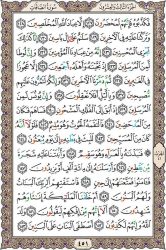 فَكَذَّبُوهُ فَإِنَّهُمْ لَمُحْضَرُونَ ١٢٧ إِلَّا عِبَادَ اللَّهِ الْمُخْلَصِينَ ١٢٨
وَتَرَكْنَا عَلَيْهِ فِي الْآخِرِينَ ١٢٩ سَلَامٌ عَلَىٰ إِلْ يَاسِينَ ١٣٠ إِنَّا كَذَٰلِكَ
نَجْزِي الْمُحْسِنِينَ ١٣١ إِنَّهُ مِنْ عِبَادِنَا الْمُؤْمِنِينَ ١٣٢ وَإِنَّ لُوطًا
لَمِنَ الْمُرْسَلِينَ ١٣٣ إِذْ نَجَّيْنَاهُ وَأَهْلَهُ أَجْمَعِينَ ١٣٤ إِلَّا عَجُوزًا
فِي الْغَابِرِينَ ١٣٥ ثُمَّ دَمَّرْنَا الْآخَرِينَ ١٣٦ وَإِنَّكُمْ لَتَمُرُّونَ عَلَيْهِمْ
مُصْبِحِينَ ١٣٧ وَبِاللَّيْلِ أَفَلَا تَعْقِلُونَ ١٣٨ وَإِنَّ يُونُسَ لَمِنَ
الْمُرْسَلِينَ ١٣٩ إِذْ أَبَقَ إِلَى الْفُلْكِ الْمَشْحُونِ ١٤٠ فَسَاهَمَ فَكَانَ
مِنَ الْمُدْحَضِينَ ١٤١ فَالْتَقَمَهُ الْحُوتُ وَهُوَ مُلِيمٌ ١٤٢ فَلَوْلَا أَنَّهُ
كَانَ مِنَ الْمُسَبِّحِينَ ١٤٣ لَلَبِثَ فِي بَطْنِهِ إِلَىٰ يَوْمِ يُبْعَثُونَ ١٤٤
فَنَبَذْنَاهُ بِالْعَرَاءِ وَهُوَ سَقِيمٌ ١٤٥ وَأَنْبَتْنَا عَلَيْهِ شَجَرَةً
مِنْ يَقْطِينٍ ١٤٦ وَأَرْسَلْنَاهُ إِلَىٰ مِائَةِ أَلْفٍ أَوْ يَزِيدُونَ ١٤٧
فَآمَنُوا فَمَتَّعْنَاهُمْ إِلَىٰ حِينٍ ١٤٨ فَاسْتَفْتِهِمْ أَلِرَبِّكَ الْبَنَاتُ
وَلَهُمُ الْبَنُونَ ١٤٩ أَمْ خَلَقْنَا الْمَلَائِكَةَ إِنَاثًا وَهُمْ شَاهِدُونَ ١٥٠
أَلَا إِنَّهُمْ مِنْ إِفْكِهِمْ لَيَقُولُونَ ١٥١ وَلَدَ اللَّهُ وَإِنَّهُمْ
لَكَاذِبُونَ ١٥٢ أَصْطَفَى الْبَنَاتِ عَلَى الْبَنِينَ ١٥٣
٤٥١